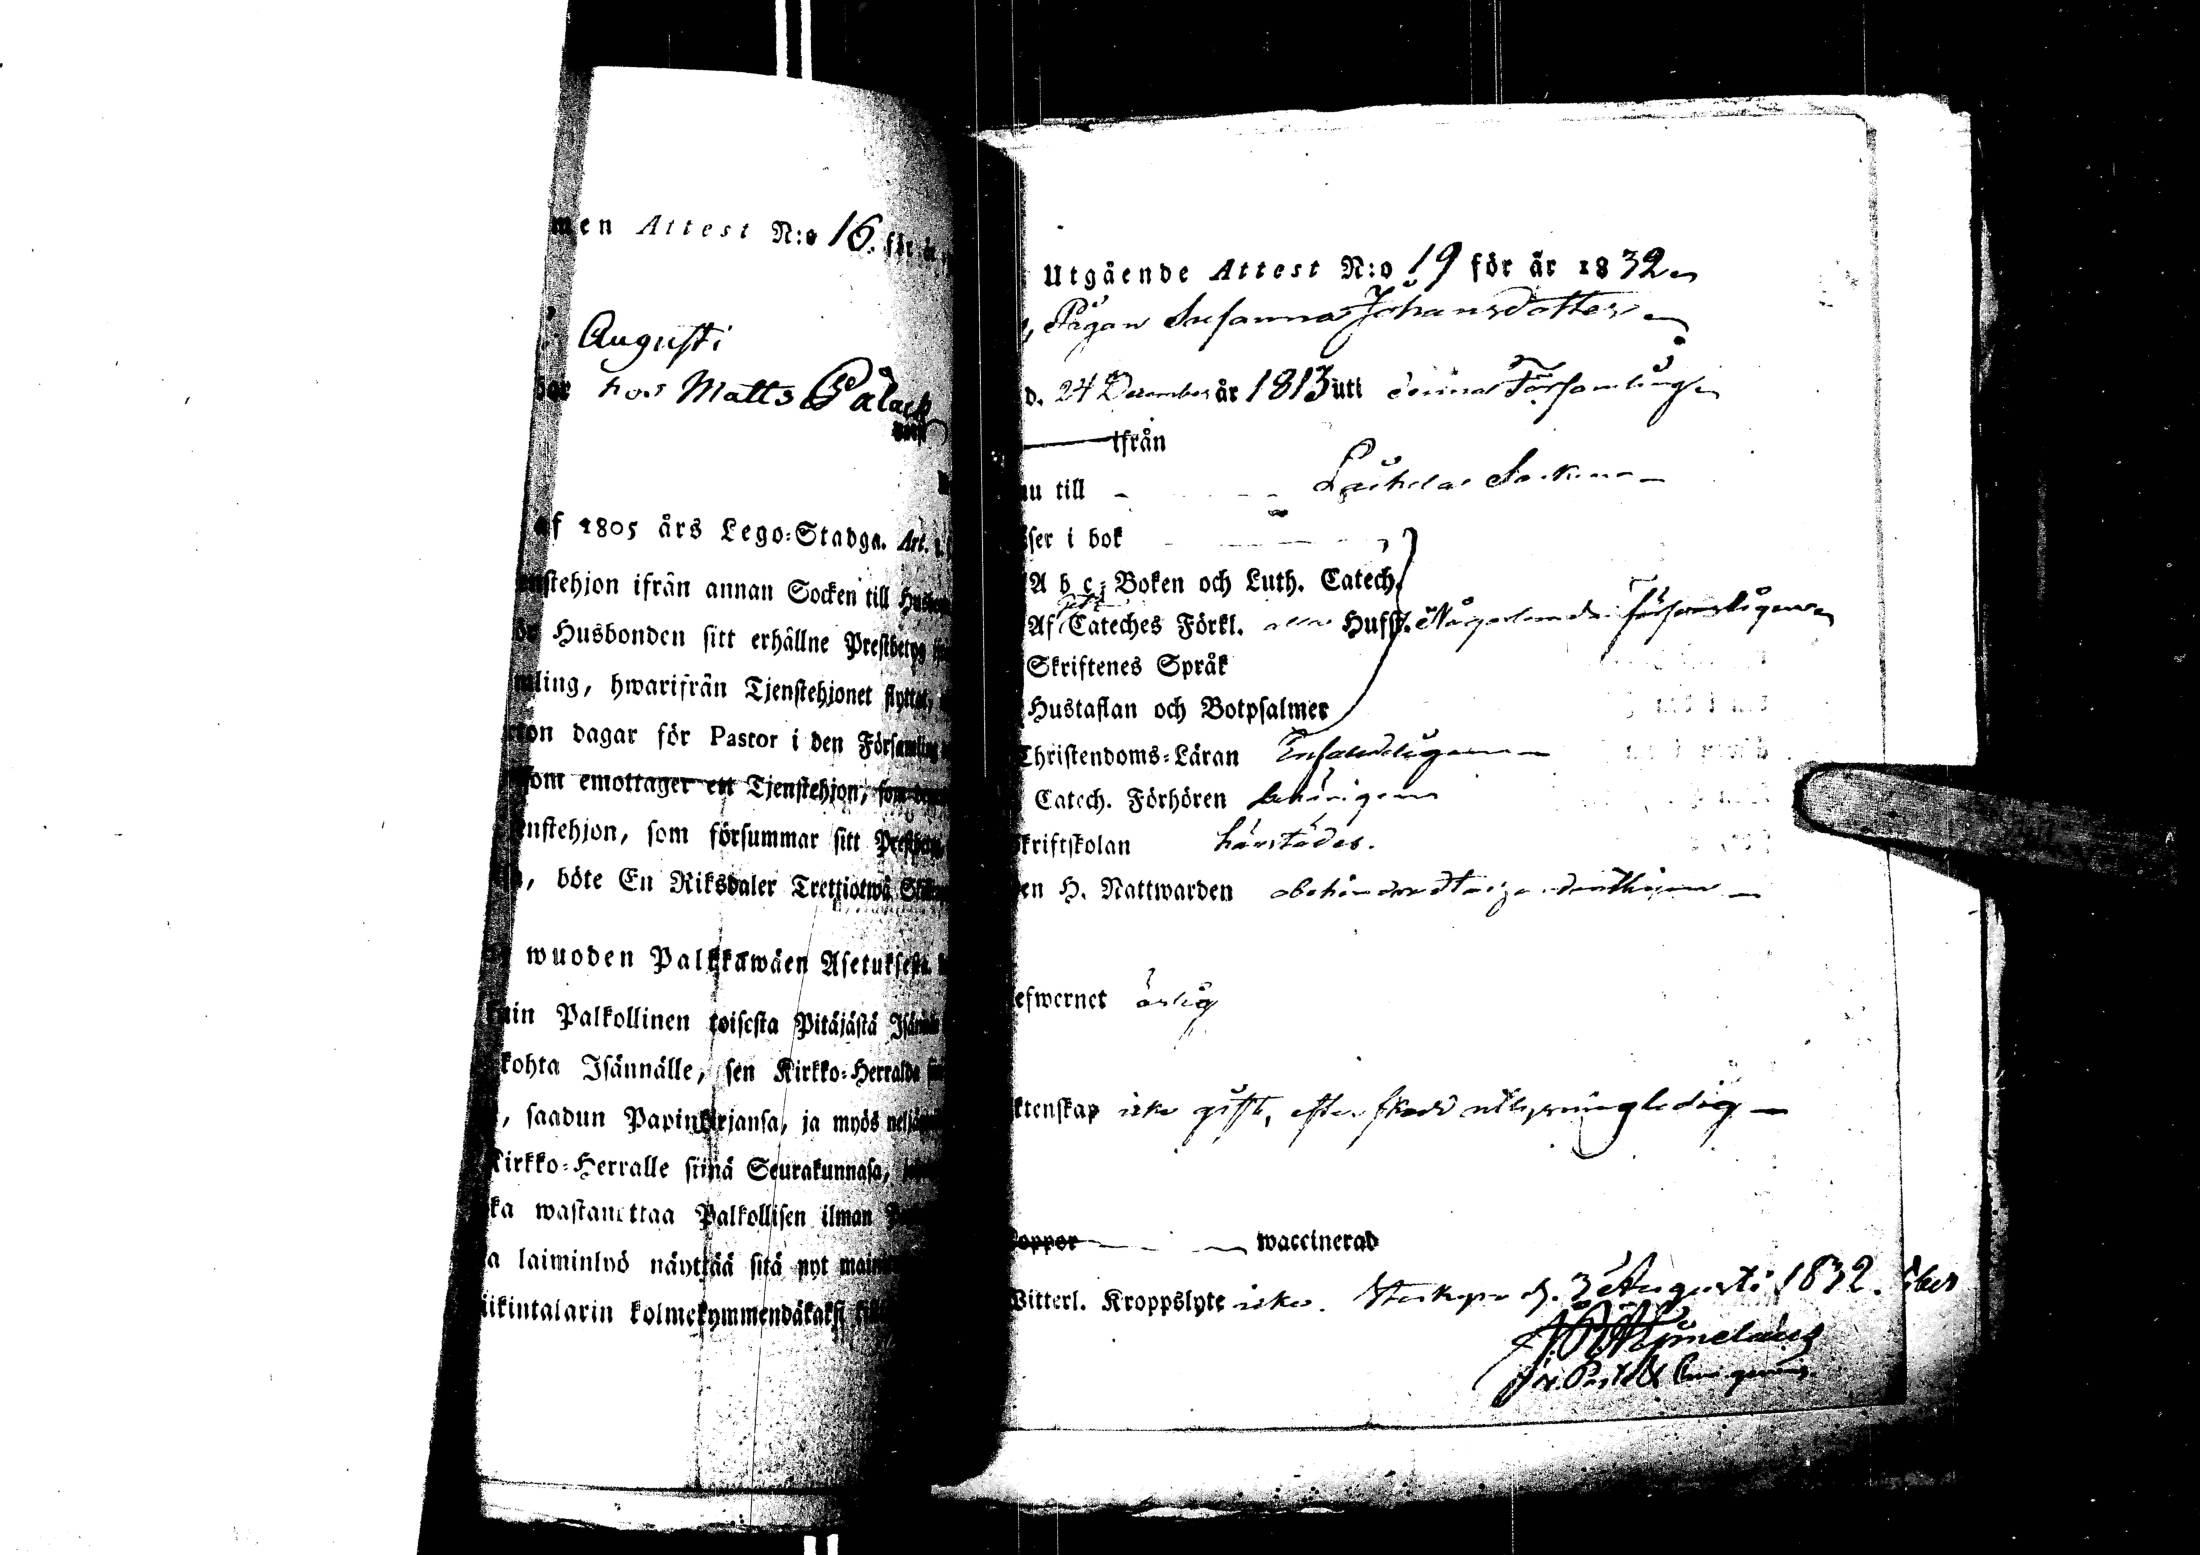 men Attest N:o 16. för år
Augusti
hos Matts Pålack
af 1805 års Lego-Stadga. Art.
enstehjon ifrån annan Socken till
ör Husbonden sitt erhållne Prestbetyg
mling, hwarifrån Tjenstehjonet flyttat,
rton dagar för Pastor i den Församling
som emottager ett Tjenstehjon, som
enstehjon, som försummar sitt
, böte En Riksdaler Trettiotwå
wuoden Palkkawäen Asetuksesta.
uin Palkollinen toisesta Pitäjästä
kohta Isännälle, sen Kirkko-Herralda
, saadun Papinkirjansa, ja myös
Kirkko-Herralle siinä Seurakunnasa,
ka wastanottaa Palkollisen ilman
a laiminlyö näyttää sitä nyt
iikintalarin kolmekymmendäkaksi
Utgående Attest N:o 19 för år 1832
Pigan Susanna Johansdotter
d. 24 December år 1813 uti denna Församling
ifrån
nu till Laihela Socken
ser i bok
A b c-Boken och Luth. Catech.
Af Cateches Förkl. Hufst. Någorlunda försvarligen
Skriftenes Språk
Hustaflan och Botpsalmer
Christendoms-Läran Enfaldeligen
Catech. Förhören behörigen
Skriftskolan härstädes.
en H. Nattwarden obehindrad
efwernet ärlig
ktenskap icke gift, efter ledig
oppor waccinerad
Witterl. Kroppslyte icke. d. 3 Augusti 1832.